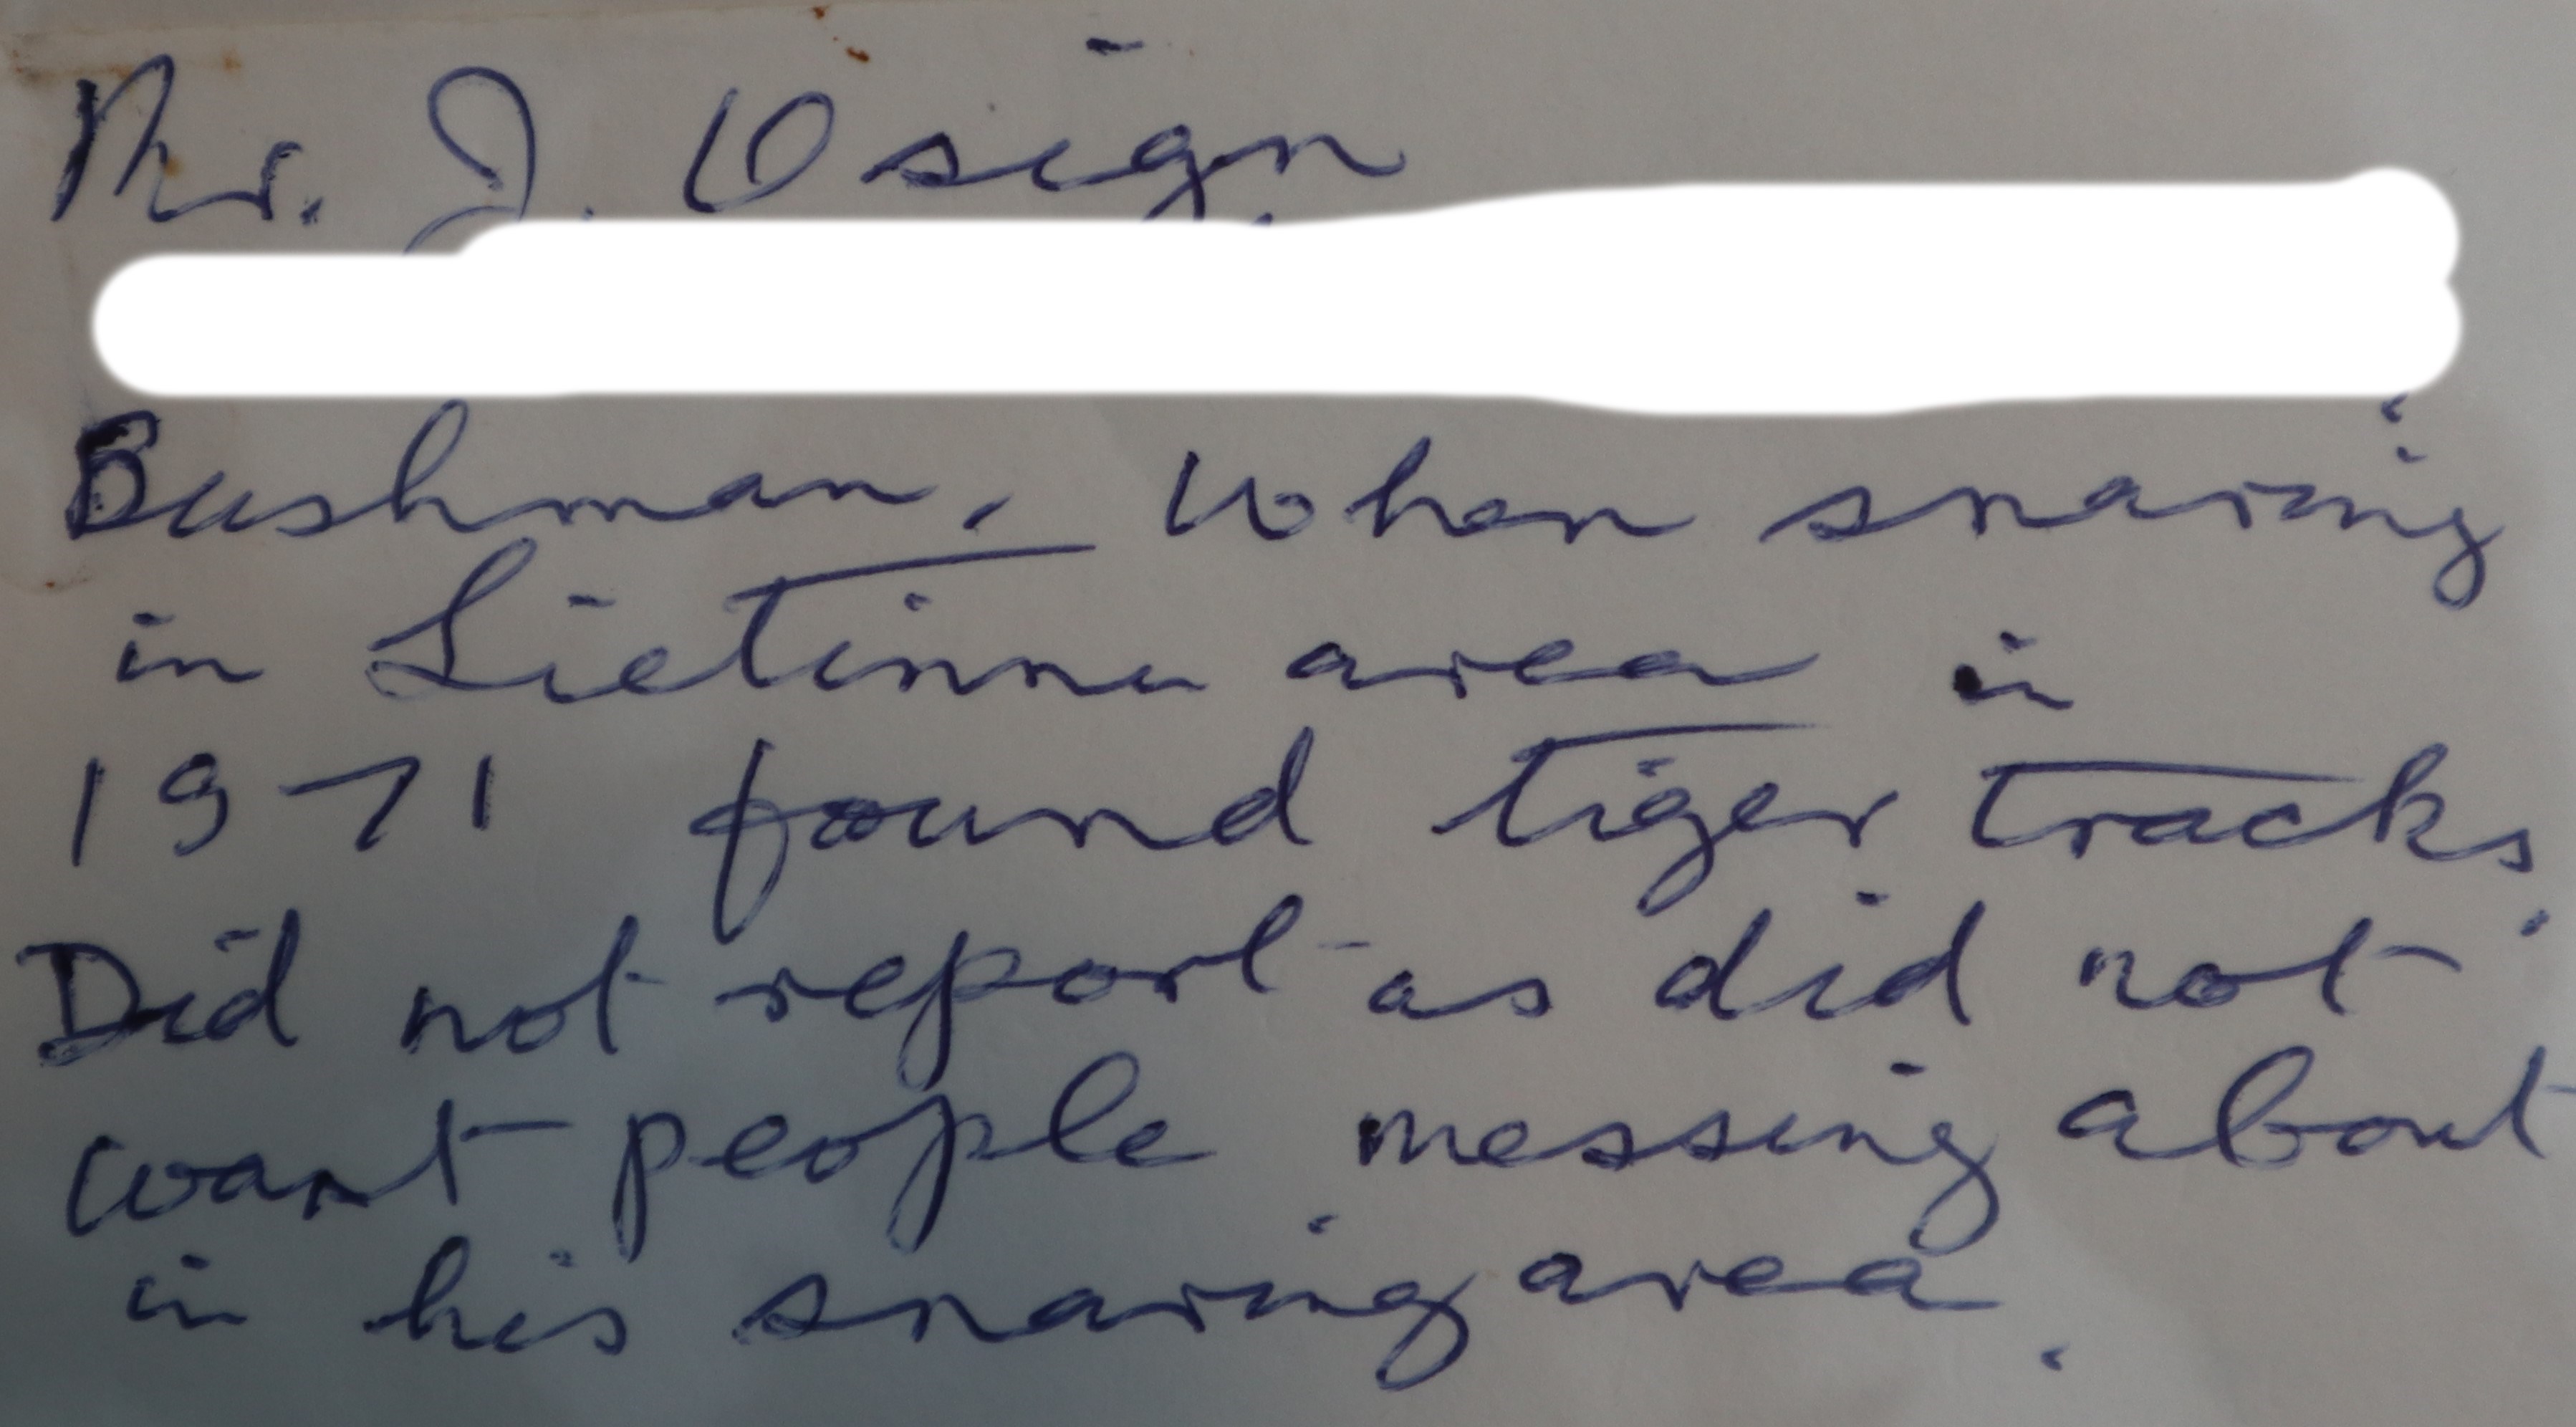 Mr. J. Osign
Bushman. When snaring
in Lietinna area in
1971 found tiger tracks.
Did not report as did not
want people messing about
in his snaring area.